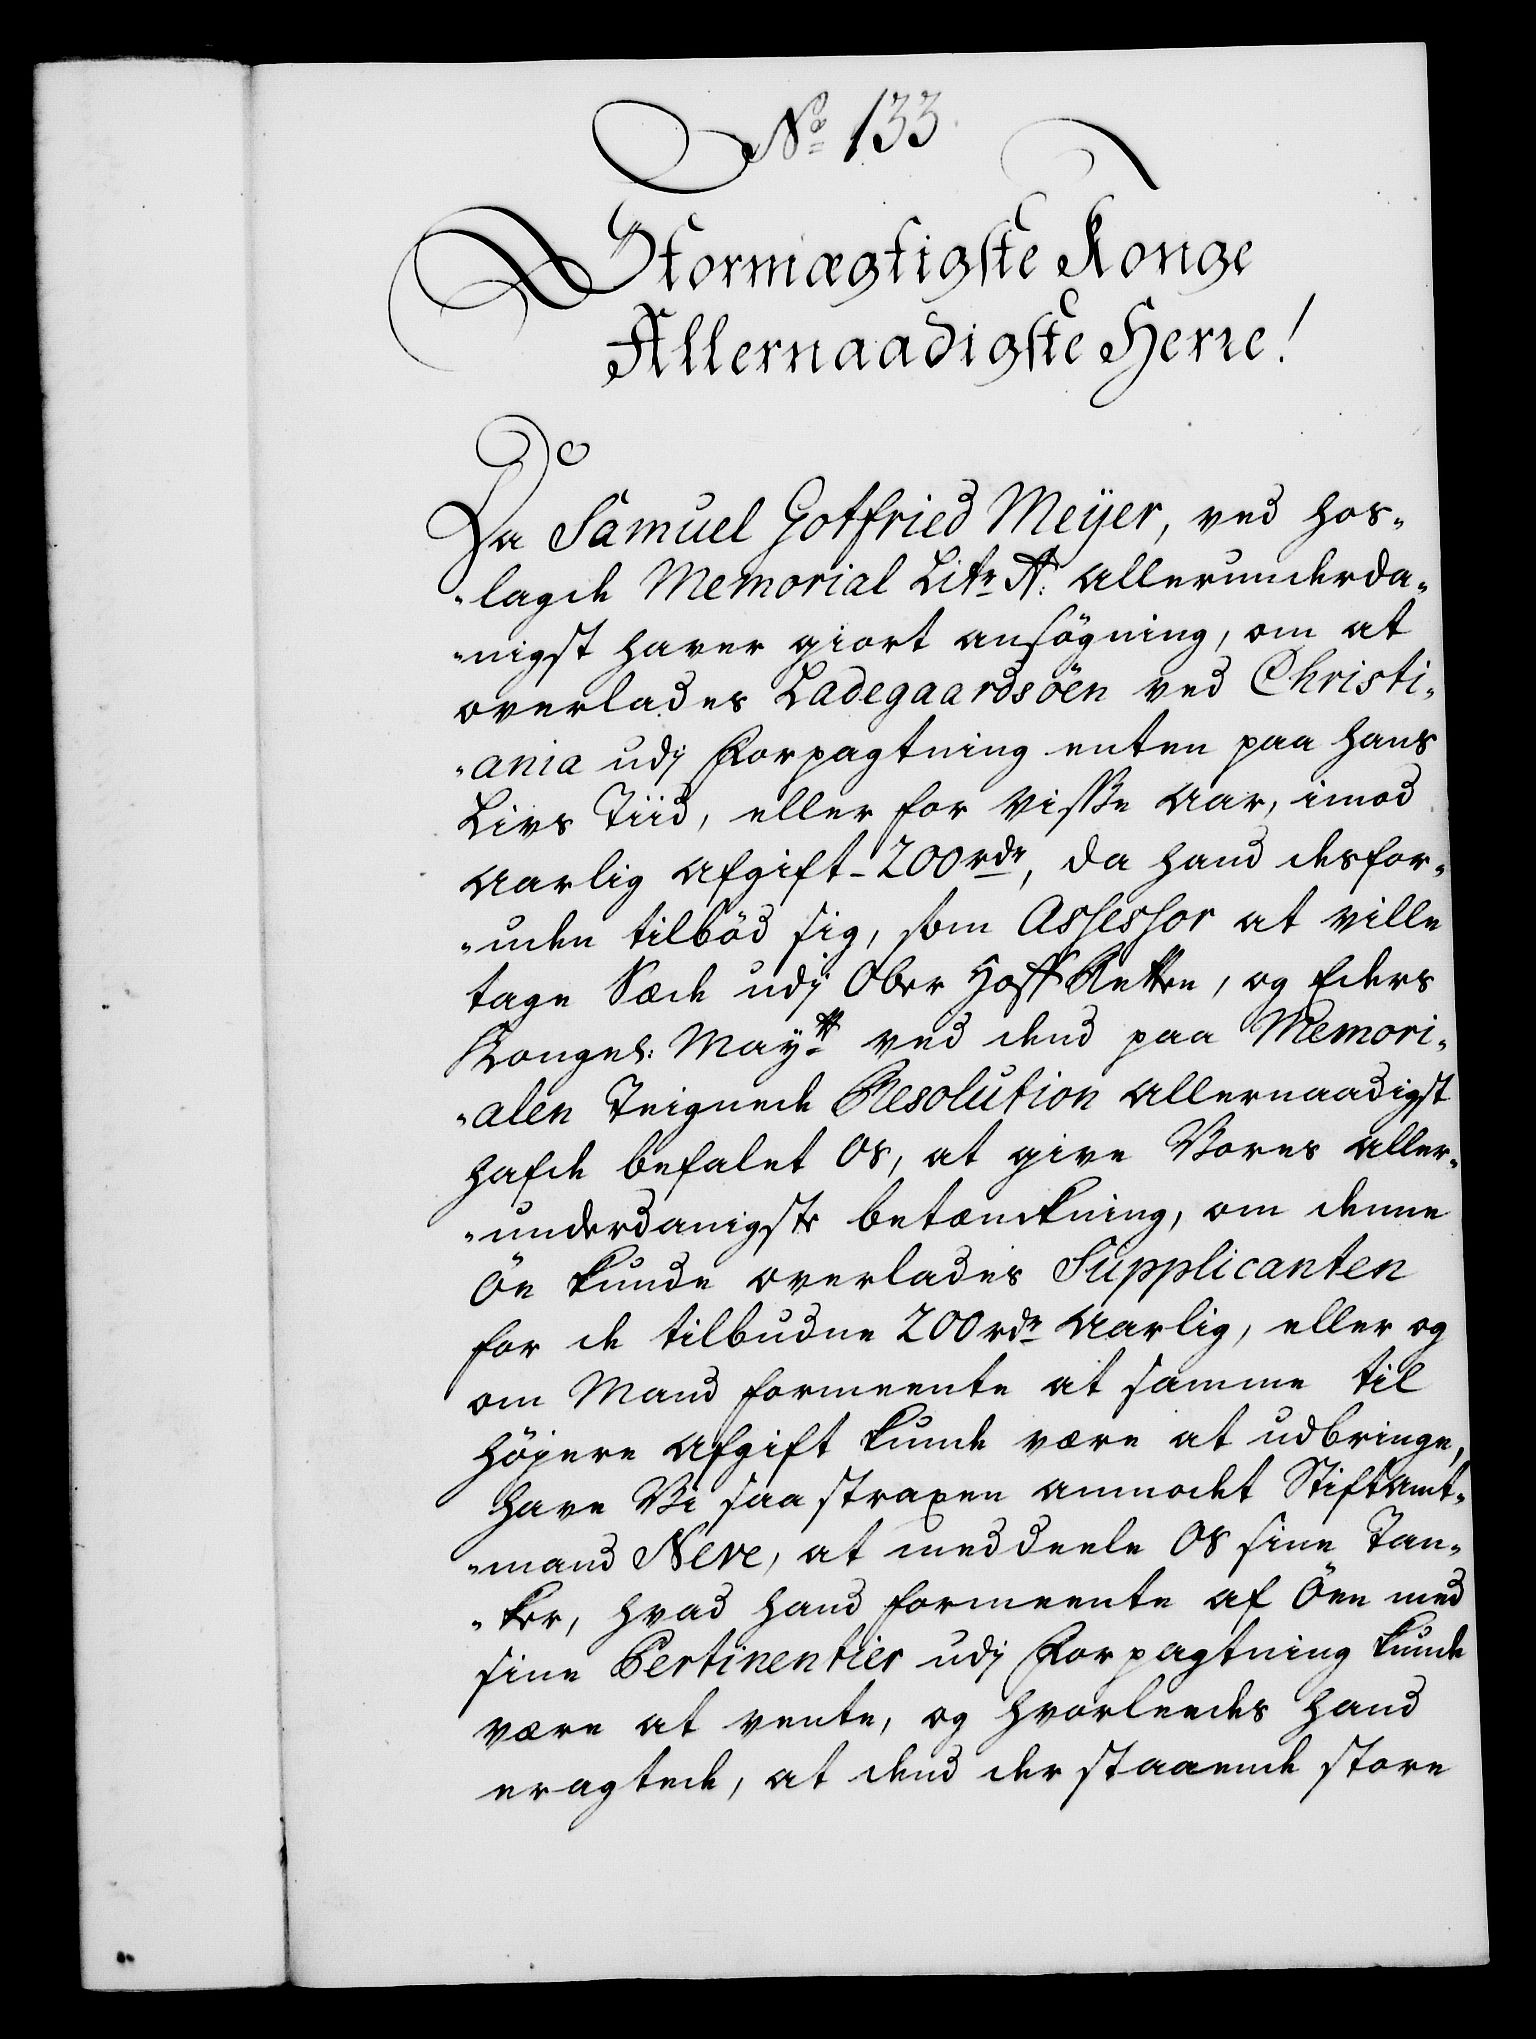 No 133
Stormægtigste Konge
Allernaadigste Herre!
Da Samuel Gotfried Meÿer, ved hos-
-lagde Memorial Litr A: allerunderda-
-nigst haver giort ansögning, om at
overlades Ladegaardsöen ved Christi-
-ania udj Forpagtning enten paa hans
Livs Tiid, eller for visse Aar, imod
aarlig afgift 200 rdr, da hand desfor-
-uden tilböd sig, som Assessor at ville
tage Sæde udj Ober Hoff Retten, og Eders
Kongel: Mayts ved dend paa Memori-
-alen Teignede Resolution allernaadigst
hafde befalet os, at give Vores aller-
-underdanigste betænckning, om denne
Öe kunde overlades Supplicanten
for de tilbudne 200 rdr aarlig, eller og
om Mand formeente at samme til
höjere afgift kunde være at udbringe,
have Vi saa straxen anmodet Stiftamt-
-mand Neve, at meddeele os sine Tan-
-ker, hvad hand formeente af Öen med
sine Pertinentier udj Forpagtning kunde
være at vente, og hvorleedes hand
eragtede, at dend der staaende store